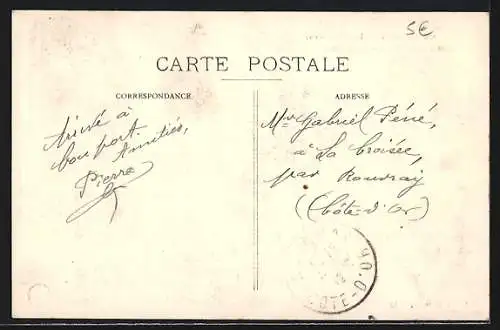 5€
CARTE POSTALE
CORRESPONDANCE
Arrivé à
bon port.
Amitiés,
Pierre
ADRESSE
Mr Gabriel Péné,
à La Croisée,
par Rouvray
(Côte-d'Or)
CÔTE-D'OR